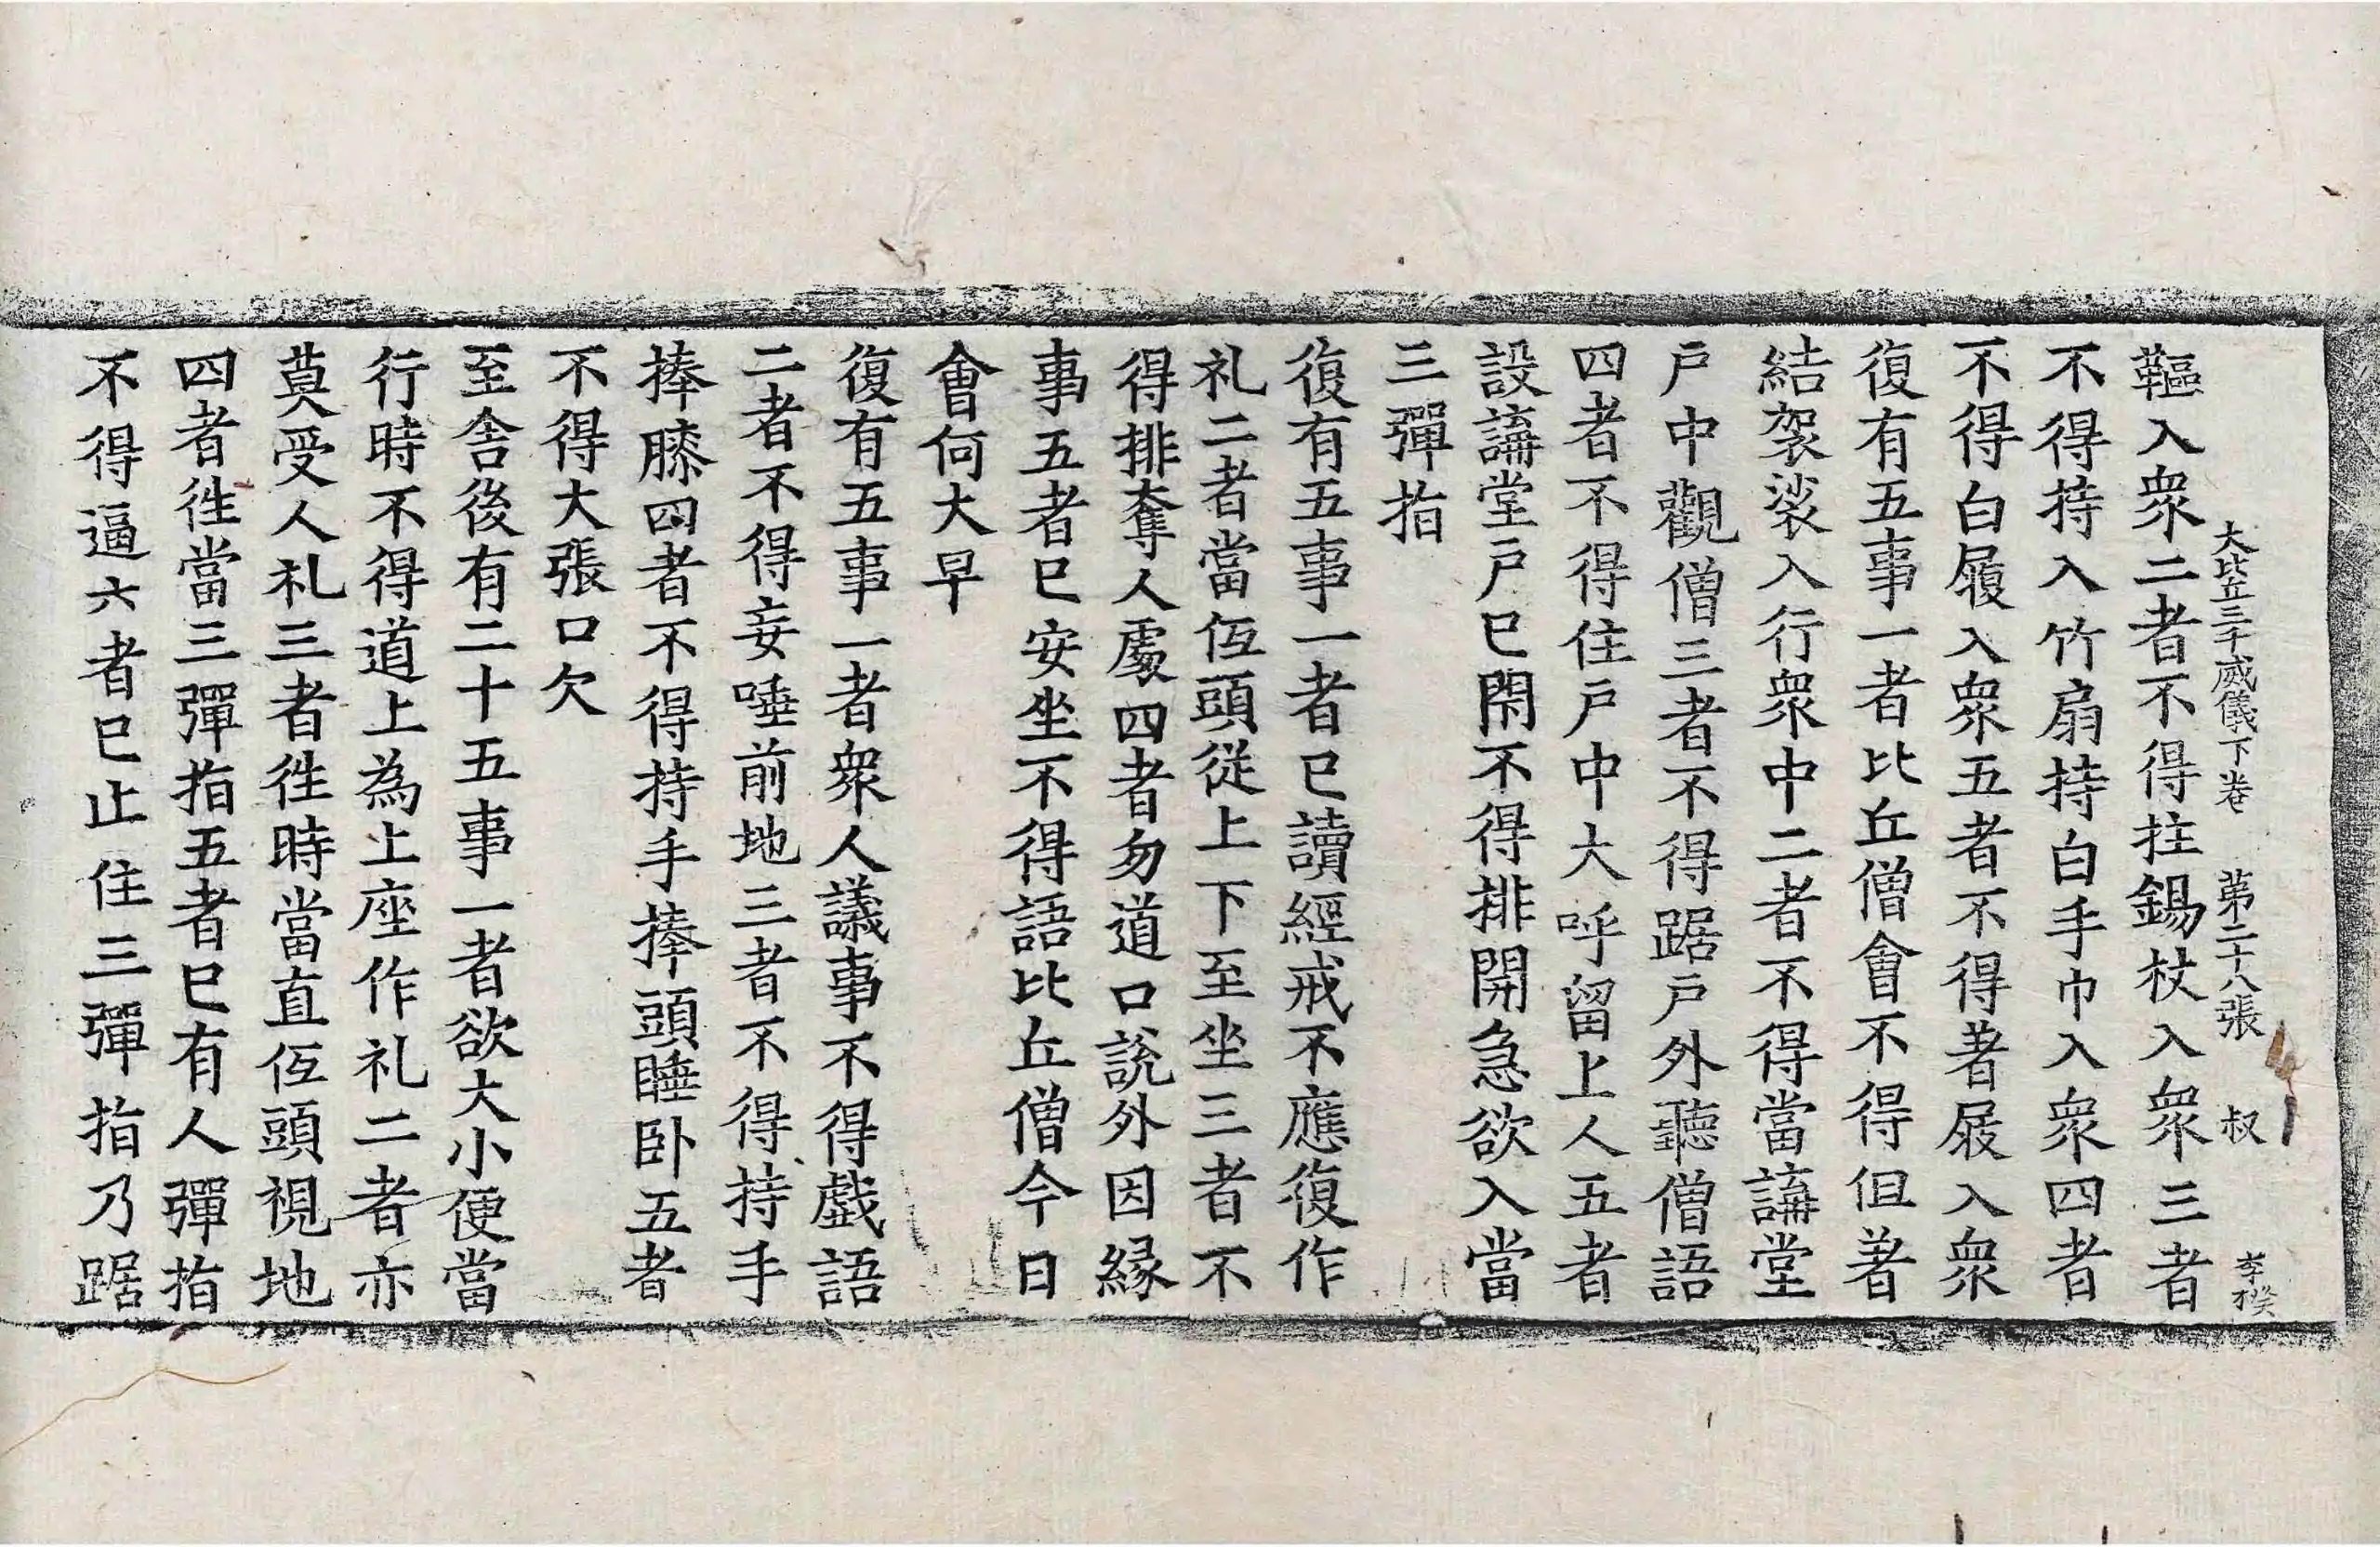 大比丘三千威儀下卷 第二十八張 叔 李揆
鞰入衆二者不得拄錫杖入衆三者
不得持入竹扇持白手巾入衆四者
不得白履入衆五者不得著屐入衆
復有五事一者比丘僧會不得但著
結袈裟入行衆中二者不得當講堂
戶中觀僧三者不得踞戶外聽僧語
四者不得住戶中大呼留上人五者
設講堂戶已閇不得排開急欲入當
三彈指
復有五事一者已讀經戒不應復作
礼二者當伭頭從上下至坐三者不
得排奪人處四者勿道口說外因緣
事五者已安坐不得語比丘僧今日
會何大早
復有五事一者衆人議事不得戲語
二者不得妄唾前地三者不得持手
捧膝四者不得持手捧頭睡卧五者
不得大張口欠
至舍後有二十五事一者欲大小便當
行時不得道上為上座作礼二者亦
莫受人礼三者徃時當直伭頭視地
四者徃當三彈指五者已有人彈指
不得逼六者已止住三彈指乃踞